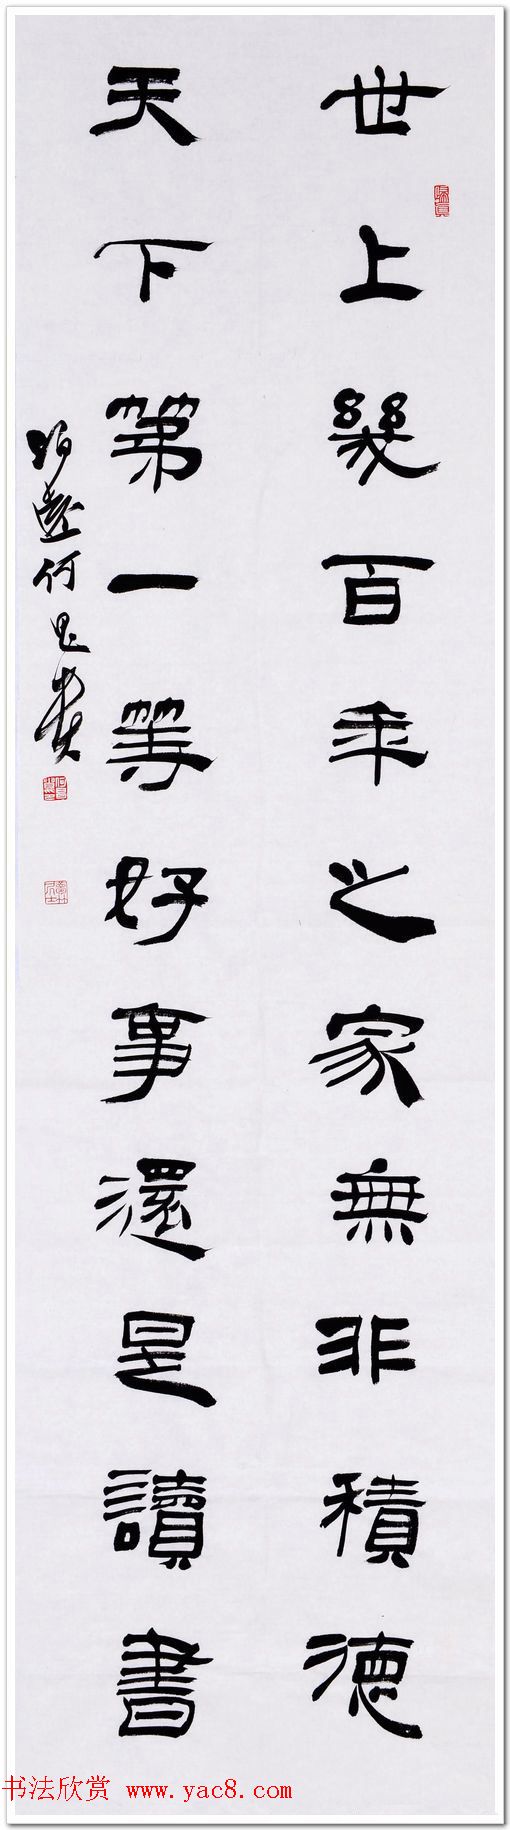 世上幾百年之家無非積德
天下第一等好事還是讀書
书法欣赏 www.yac8.com